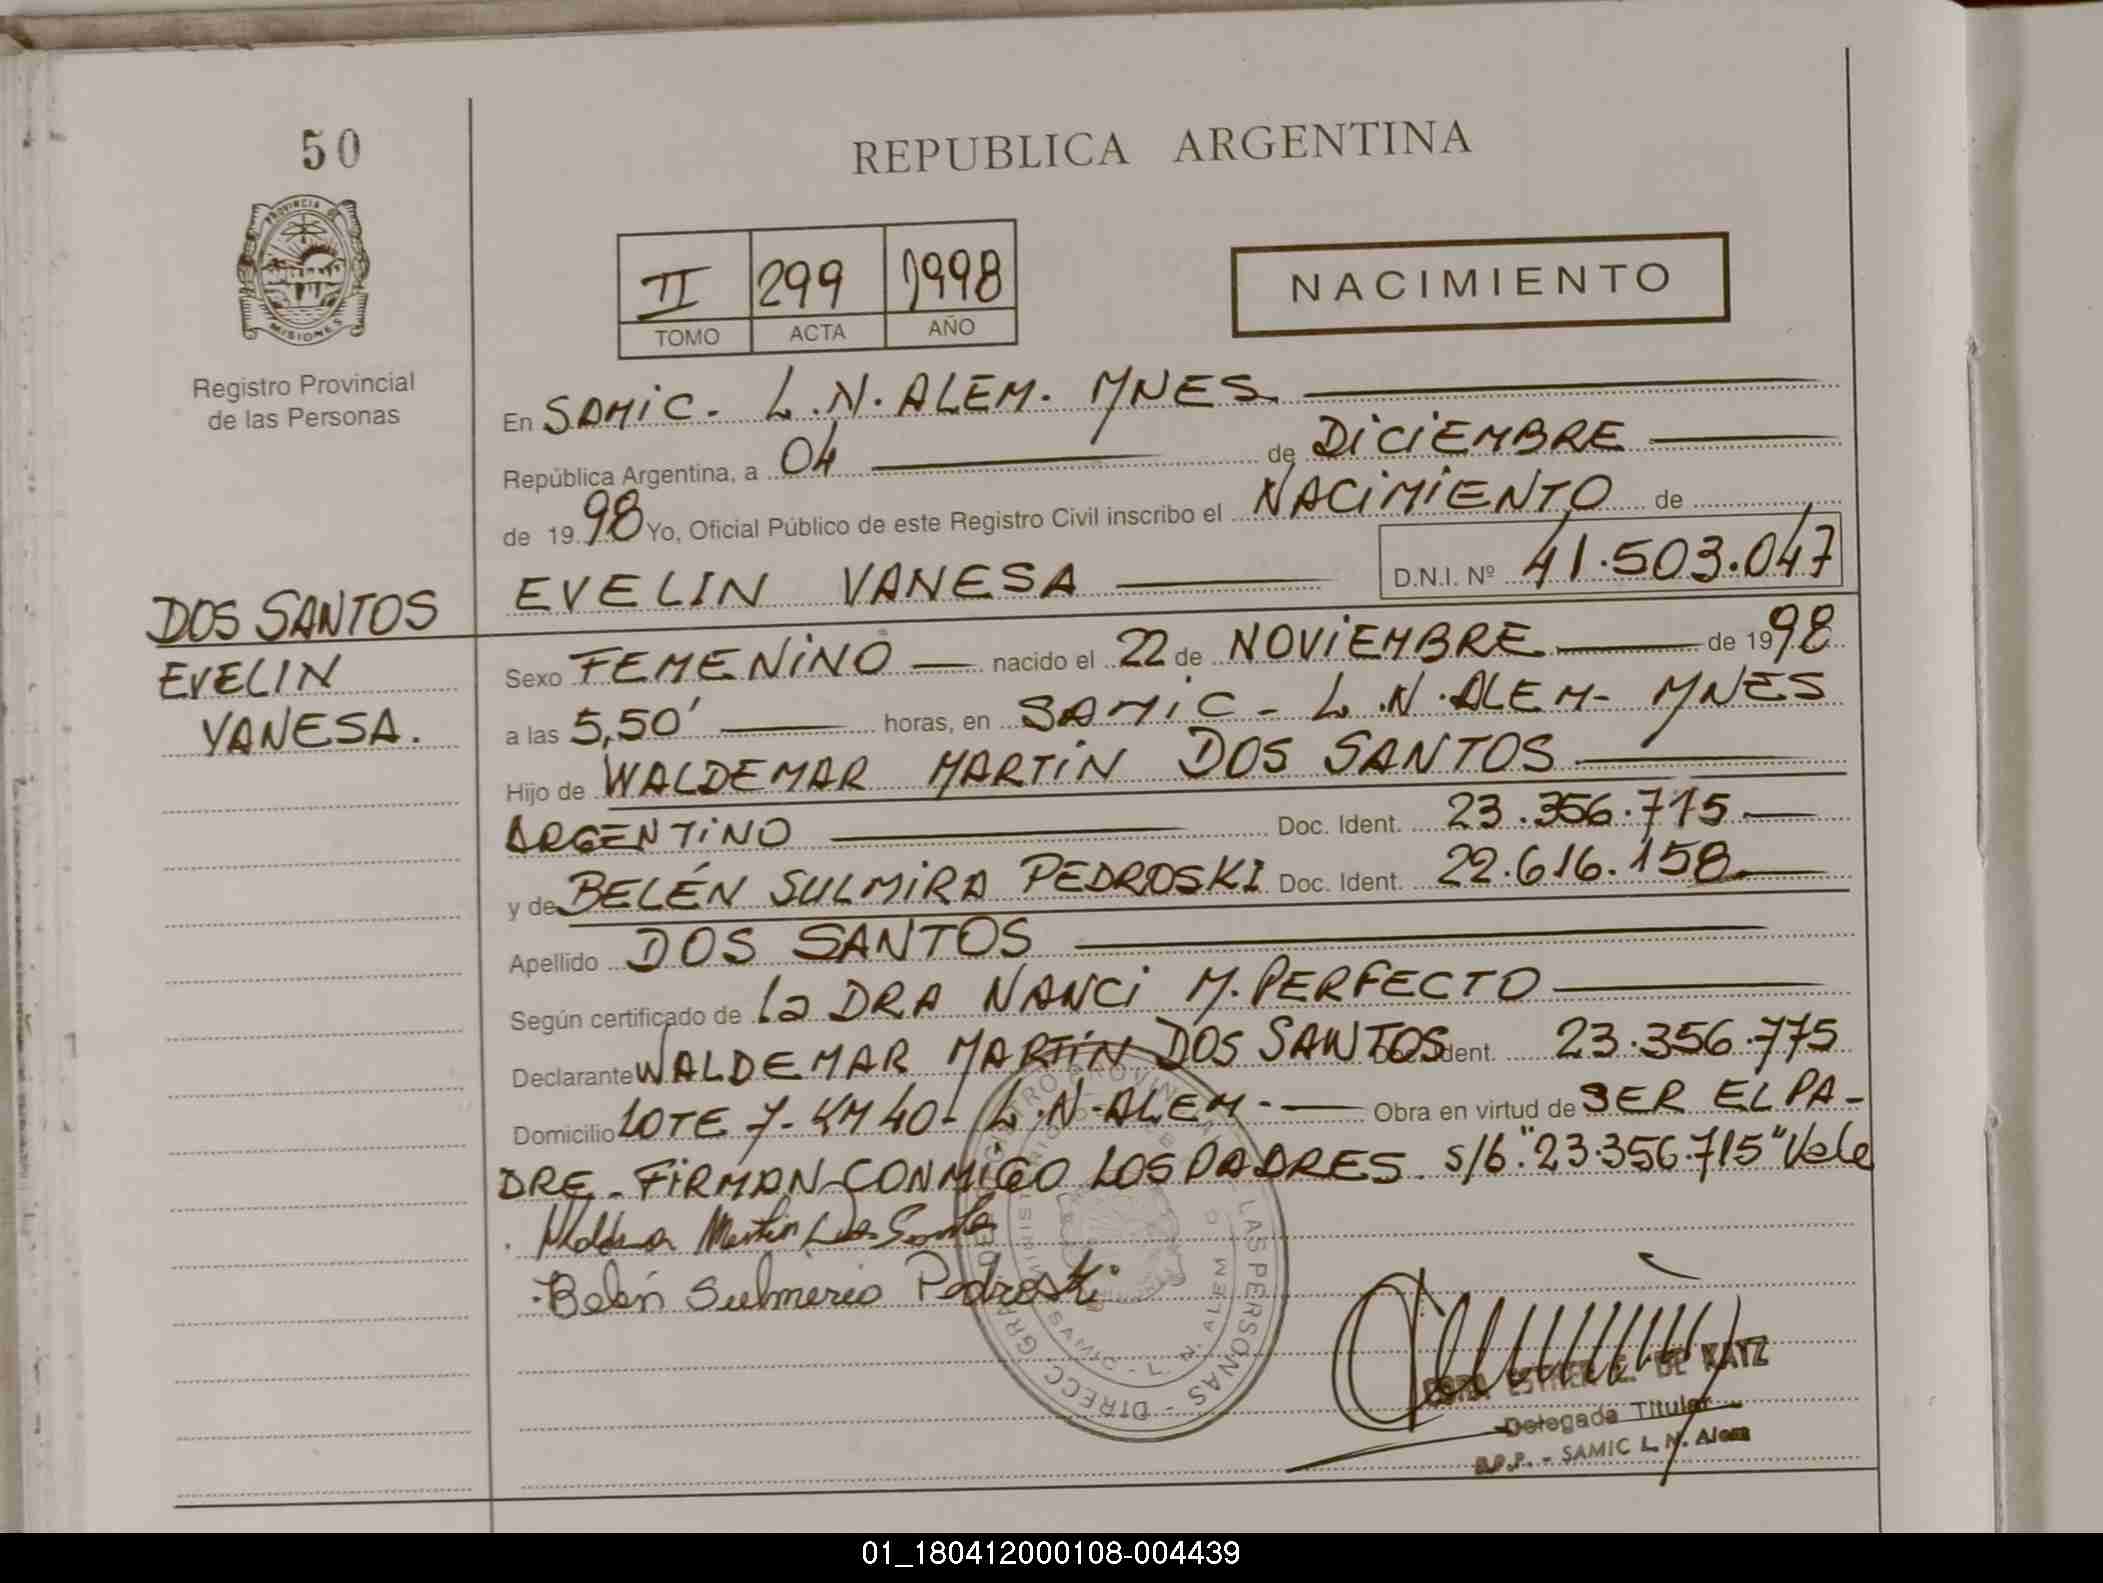 50
REPUBLICA ARGENTINA
PROVINCIA DE
MISIONES
Registro Provincial
de las Personas
II 299 1998
TOMO ACTA AÑO
NACIMIENTO
En SAMIC. L.N. ALEM. MNES
República Argentina, a 04 de DICIEMBRE
de 1998 Yo, Oficial Público de este Registro Civil inscribo el NACIMIENTO de
EVELIN VANESA D.N.I. Nº 41.503.047
DOS SANTOS
EVELIN
VANESA.
Sexo FEMENINO nacido el 22 de NOVIEMBRE de 1998
a las 5,50' horas, en SAMIC - L.N. ALEM - MNES
Hijo de WALDEMAR MARTIN DOS SANTOS
ARGENTINO Doc. Ident. 23.356.715
y de BELÉN SULMIRA PEDROSKI Doc. Ident. 22.616.158
Apellido DOS SANTOS
Según certificado de la DRA NANCI M. PERFECTO
Declarante WALDEMAR MARTIN DOS SANTOS Doc. Ident. 23.356.775
Domicilio LOTE 7 - KM 40 - L.N. ALEM - Obra en virtud de SER EL PA-
DRE - FIRMAN CONMIGO LOS PADRES. s/b: "23.356.715" Vale
Martin Dos Santos
Belén Sulmira Pedroski
LAS PERSONAS - DIRECC GRAL
L. N. ALEM
ESTHER E. DE KATZ
Delegada Titular
R.P.P. - SAMIC L. N. Alem
01_180412000108-004439